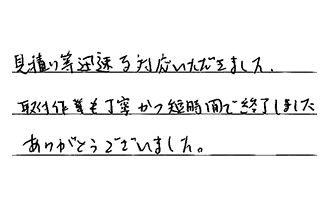 見積り等迅速な対応いただきました.
取付作業も丁寧かつ短時間で終了しました
ありがとうございました。